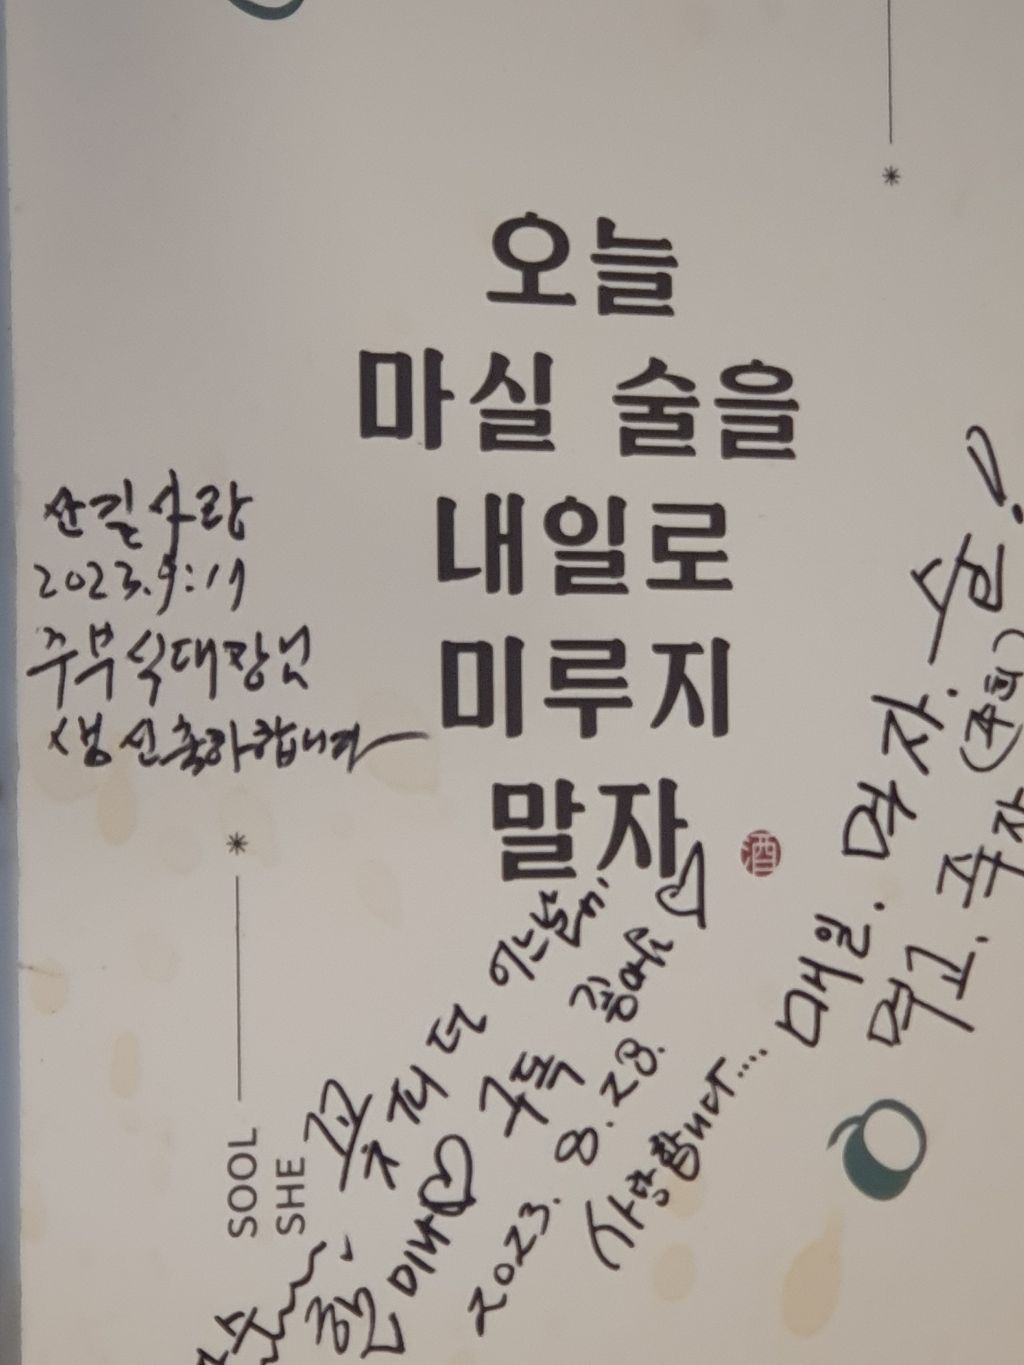 오늘
마실 술을
내일로
미루지
말자
酒
산길사랑
2023.9:17
주부식대장님
생신축하합니다
SOOL
SHE
꽃피던 어느날에.
현 미나♡ 구독 좋아요
2023. 8. 28.
사랑합니다....
매일. 먹자. 술!
먹고. 죽자